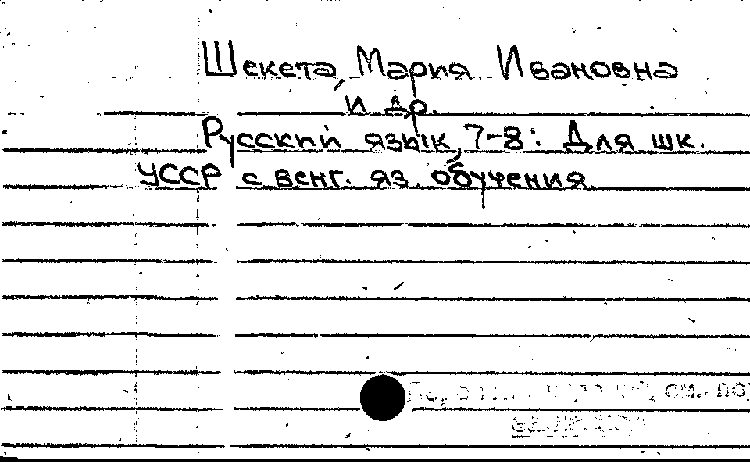 Шекета, Мария Ивановна
и др.
Русский язык, 7-8: Для шк.
УССР с венг. яз. обучения.
см. по